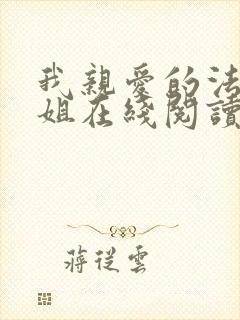 我親愛的法
姐在綫閱讀
蔣從雲